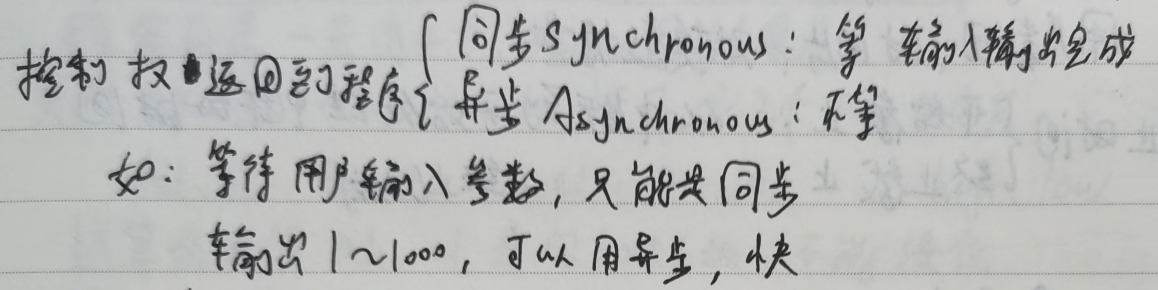 同步 Synchronous：等 输入输出完成
控制权返回到程序
异步 Asynchronous：不等
如：等待用户输入参数，只能是同步
输出1~1000，可以用异步，快